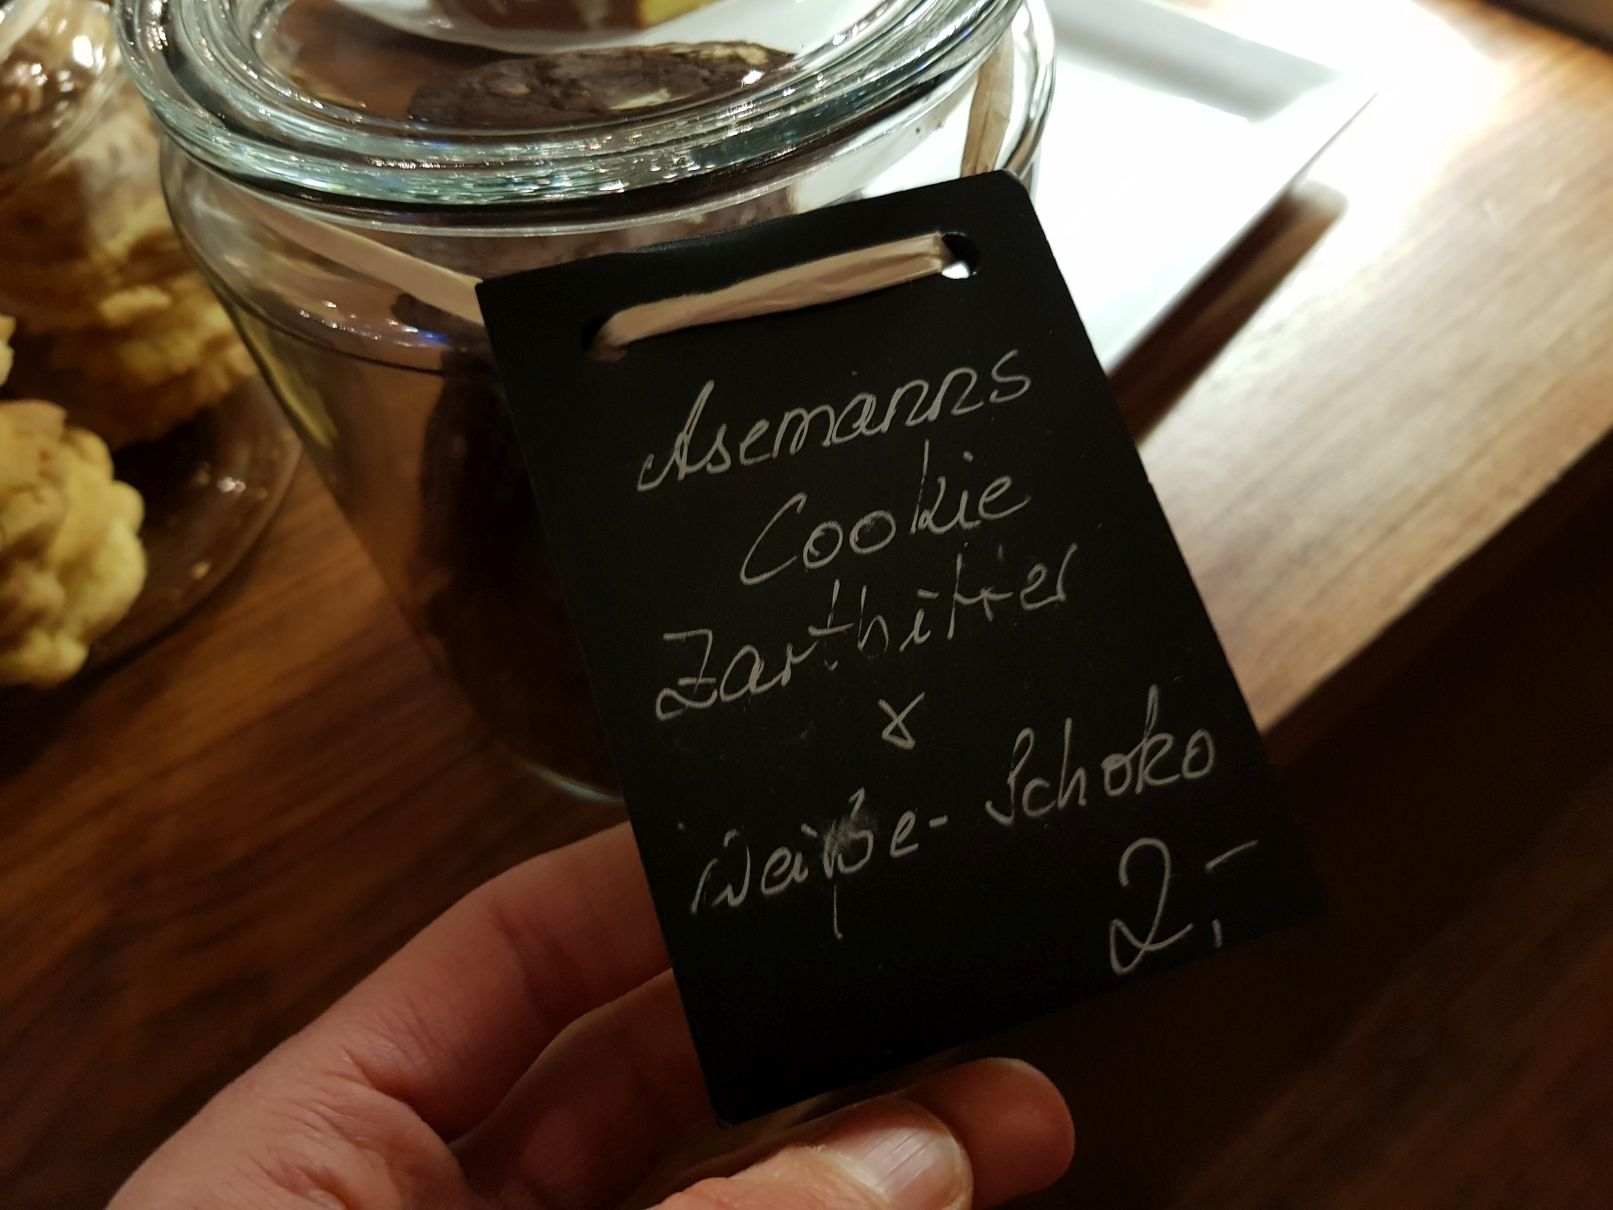 Asemanns
Cookie
Zartbitter
&
weiße-Schoko
2,-